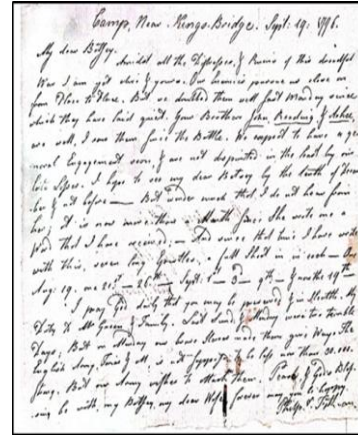 Camp, Near Kings-Bridge. Sept: 19. 1776.
My dear Betsey.
Amidst all the Distresses, & Ruins of this dreadful
War I am yet alive & yours. Our Enemies pursue us close on
from Place to Place. But we doubled them well last Monday since
which they have laid quiet. Your Brothers John, Reading, & Asher,
are well, I saw them since the Battle. We expect to have a ge-
neral Engagement soon, & are not dispirited in the least by our
late Losses. I hope to see my dear Betsey by the tenth of
ber & not before — But wonder much that I do not hear from
her; it is now more than a Month since She wrote me a
Word that I have received; — And since that time I have wrote
with this, seven long Epistles, a full Sheet in each —
Aug: 19. 21st — 26th — Sept: 1st — 3 — 9th — & 19th
I pray God daily that you may be preserved & in Health. My
Duty to Mr Green & Family. Last Sunday & Monday were terrible
Days; But on Monday our brave Heroes made them give Way. The
English Army, is not supposed to be less now than 30.000.
Strong. But our Army wishes to attack them. Peace, & God's Bles-
sing be with, my Betsey, my dear Wife forever may you be happy.